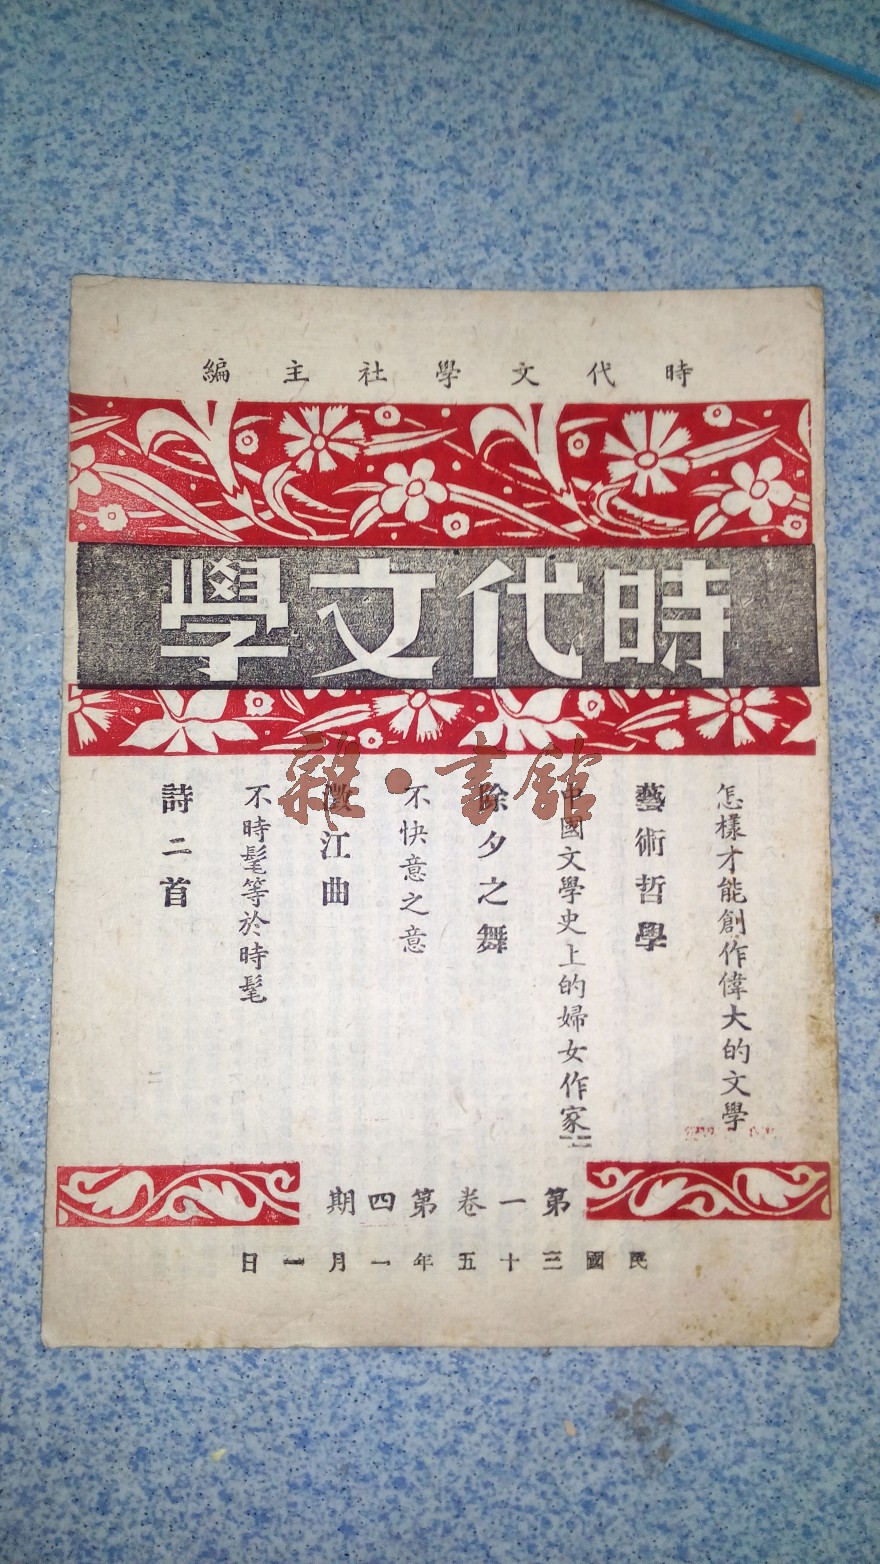 時代文學社主編
時代文學
怎樣才能創作偉大的文學
藝術哲學
中國文學史上的婦女作家(二)
除夕之舞
不快意之意
江曲
不時髦等於時髦
詩二首
第一卷第四期
民國三十五年一月一日
雜·書館